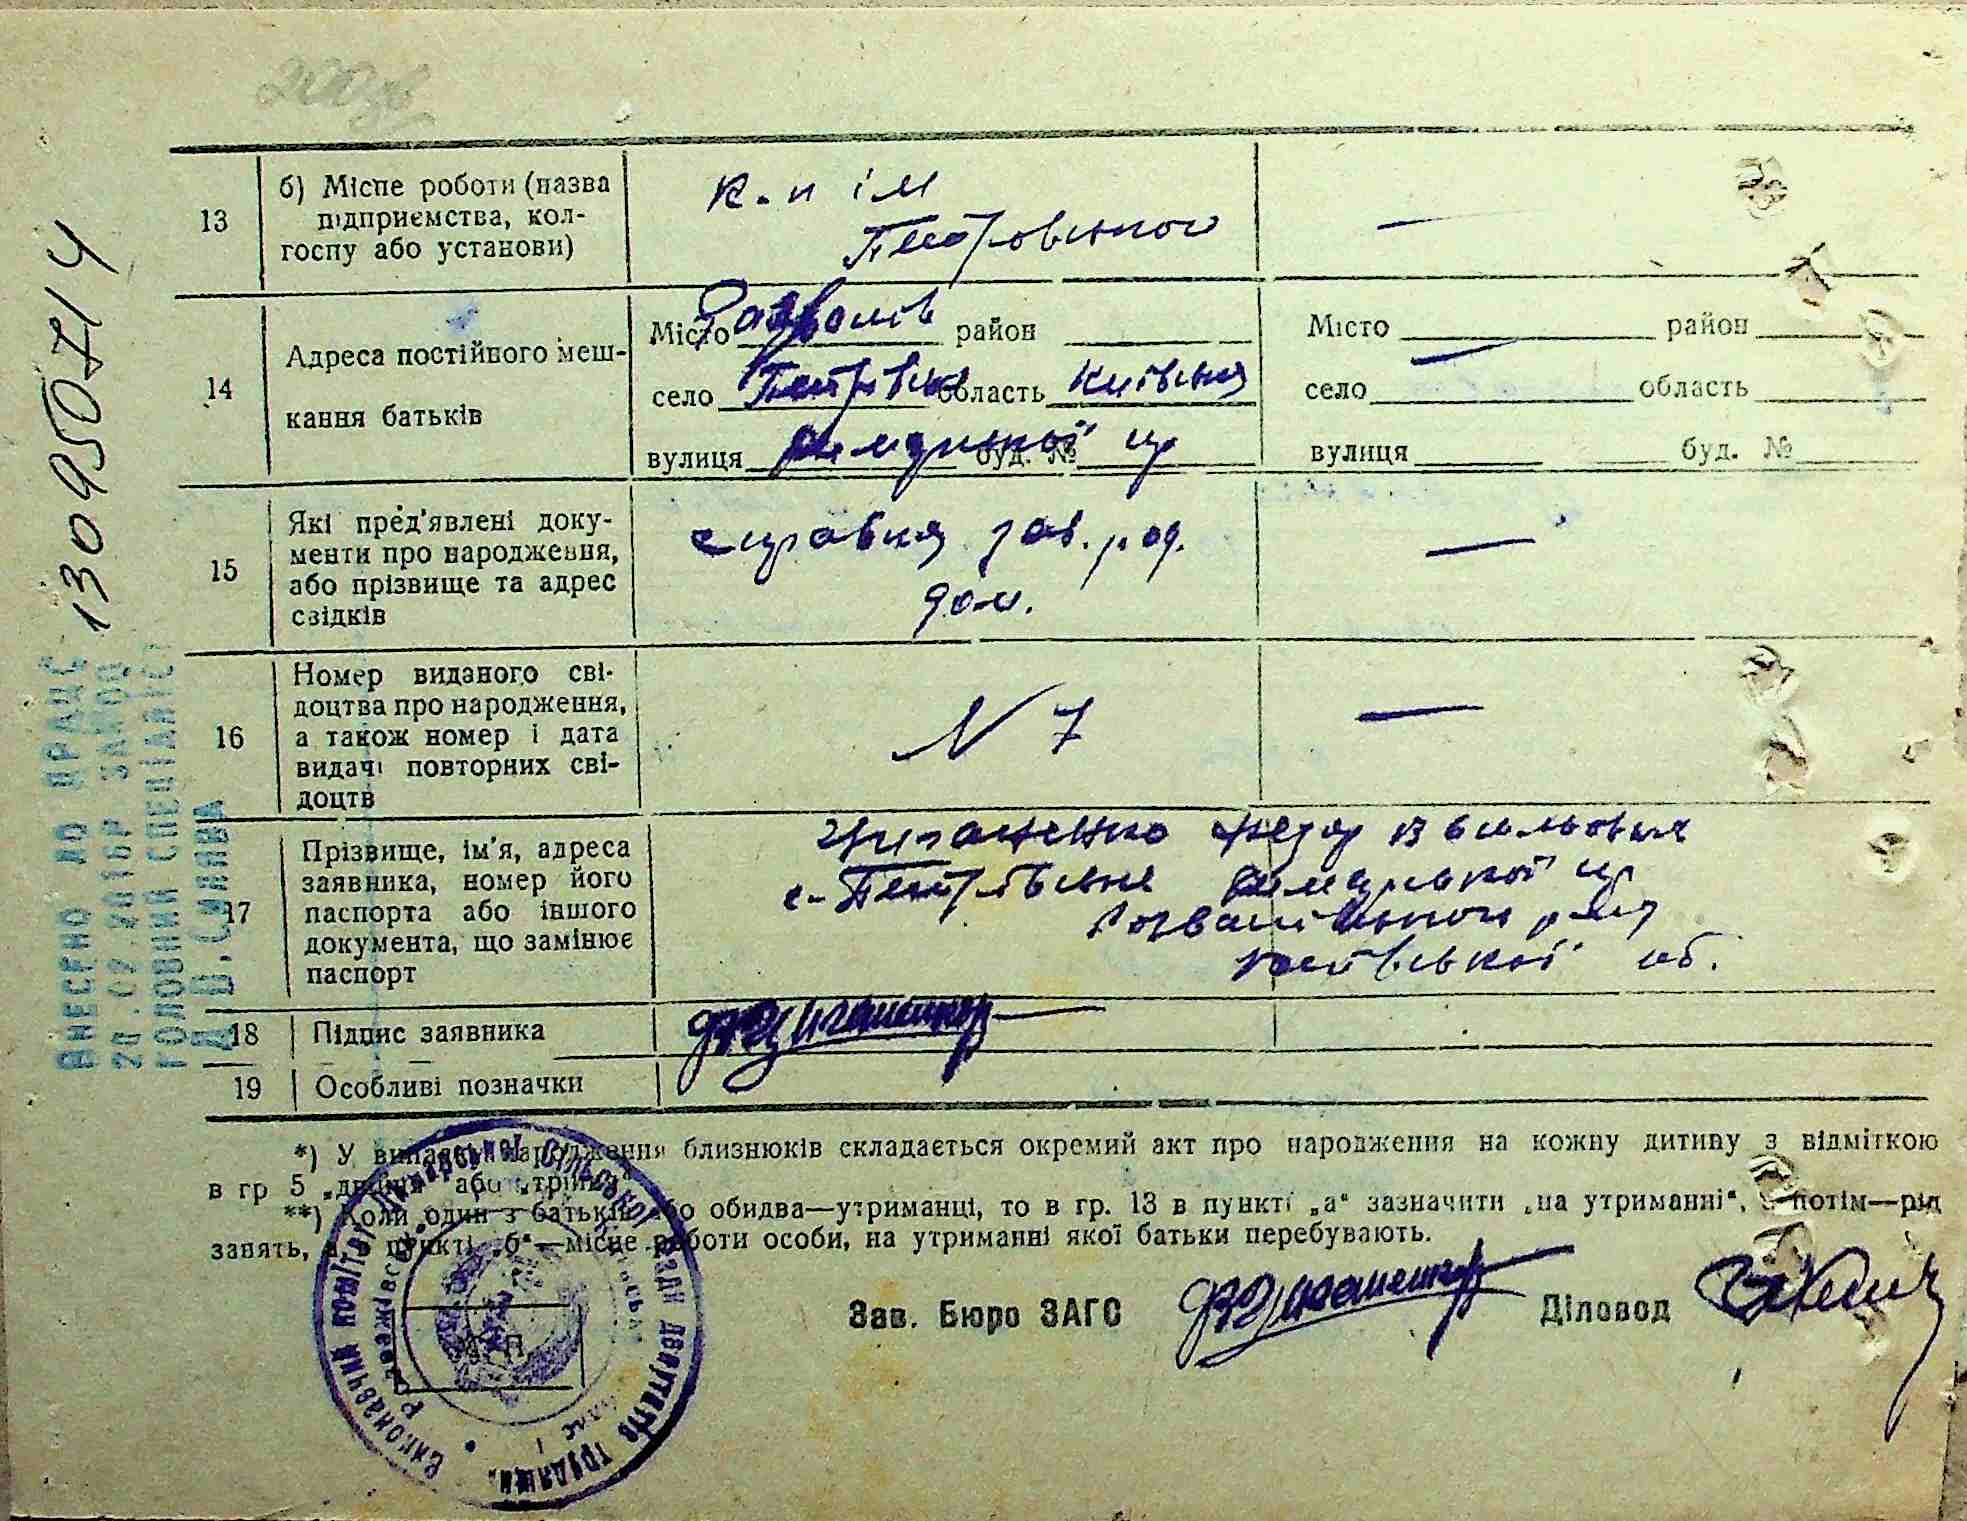 13 б) Місце роботи (назва підприємства, кол-
госпу або установи)
к-п ім
Петровського
—
14 Адреса постійного меш-
кання батьків
Місто Розважів район
село Петрівське область Київська
вулиця буд. №
Місто район
село — область
вулиця буд. №
15 Які пред'явлені доку-
менти про народження,
або прізвище та адрес
свідків
справка зав. род.
дом.
—
16 Номер виданого сві-
доцтва про народження,
а також номер і дата
видачі повторних сві-
доцтв
N 7
—
17 Прізвище, ім'я, адреса
заявника, номер його
паспорта або іншого
документа, що замінює
паспорт
Федор Васильович
с-Петрівське
Розважівського р-ну
Київської об.
18 Підпис заявника
19 Особливі позначки
*) У випадку народження близнюків складається окремий акт про народження на кожну дитину з відміткою
в гр 5 „двійня" або „трійня"
**) Коли один з батьків або обидва—утриманці, то в гр. 13 в пункті „а" зазначити „на утриманні", а потім—рід
занять, а в пункті „б"—місце роботи особи, на утриманні якої батьки перебувають.
Зав. Бюро ЗАГС Діловод
М П
Виконавчий комітет сільської Ради депутатів трудящих
130950714
ВНЕСЕНО ДО ДРАЦС
ГОЛОВНИЙ СПЕЦІАЛІСТ